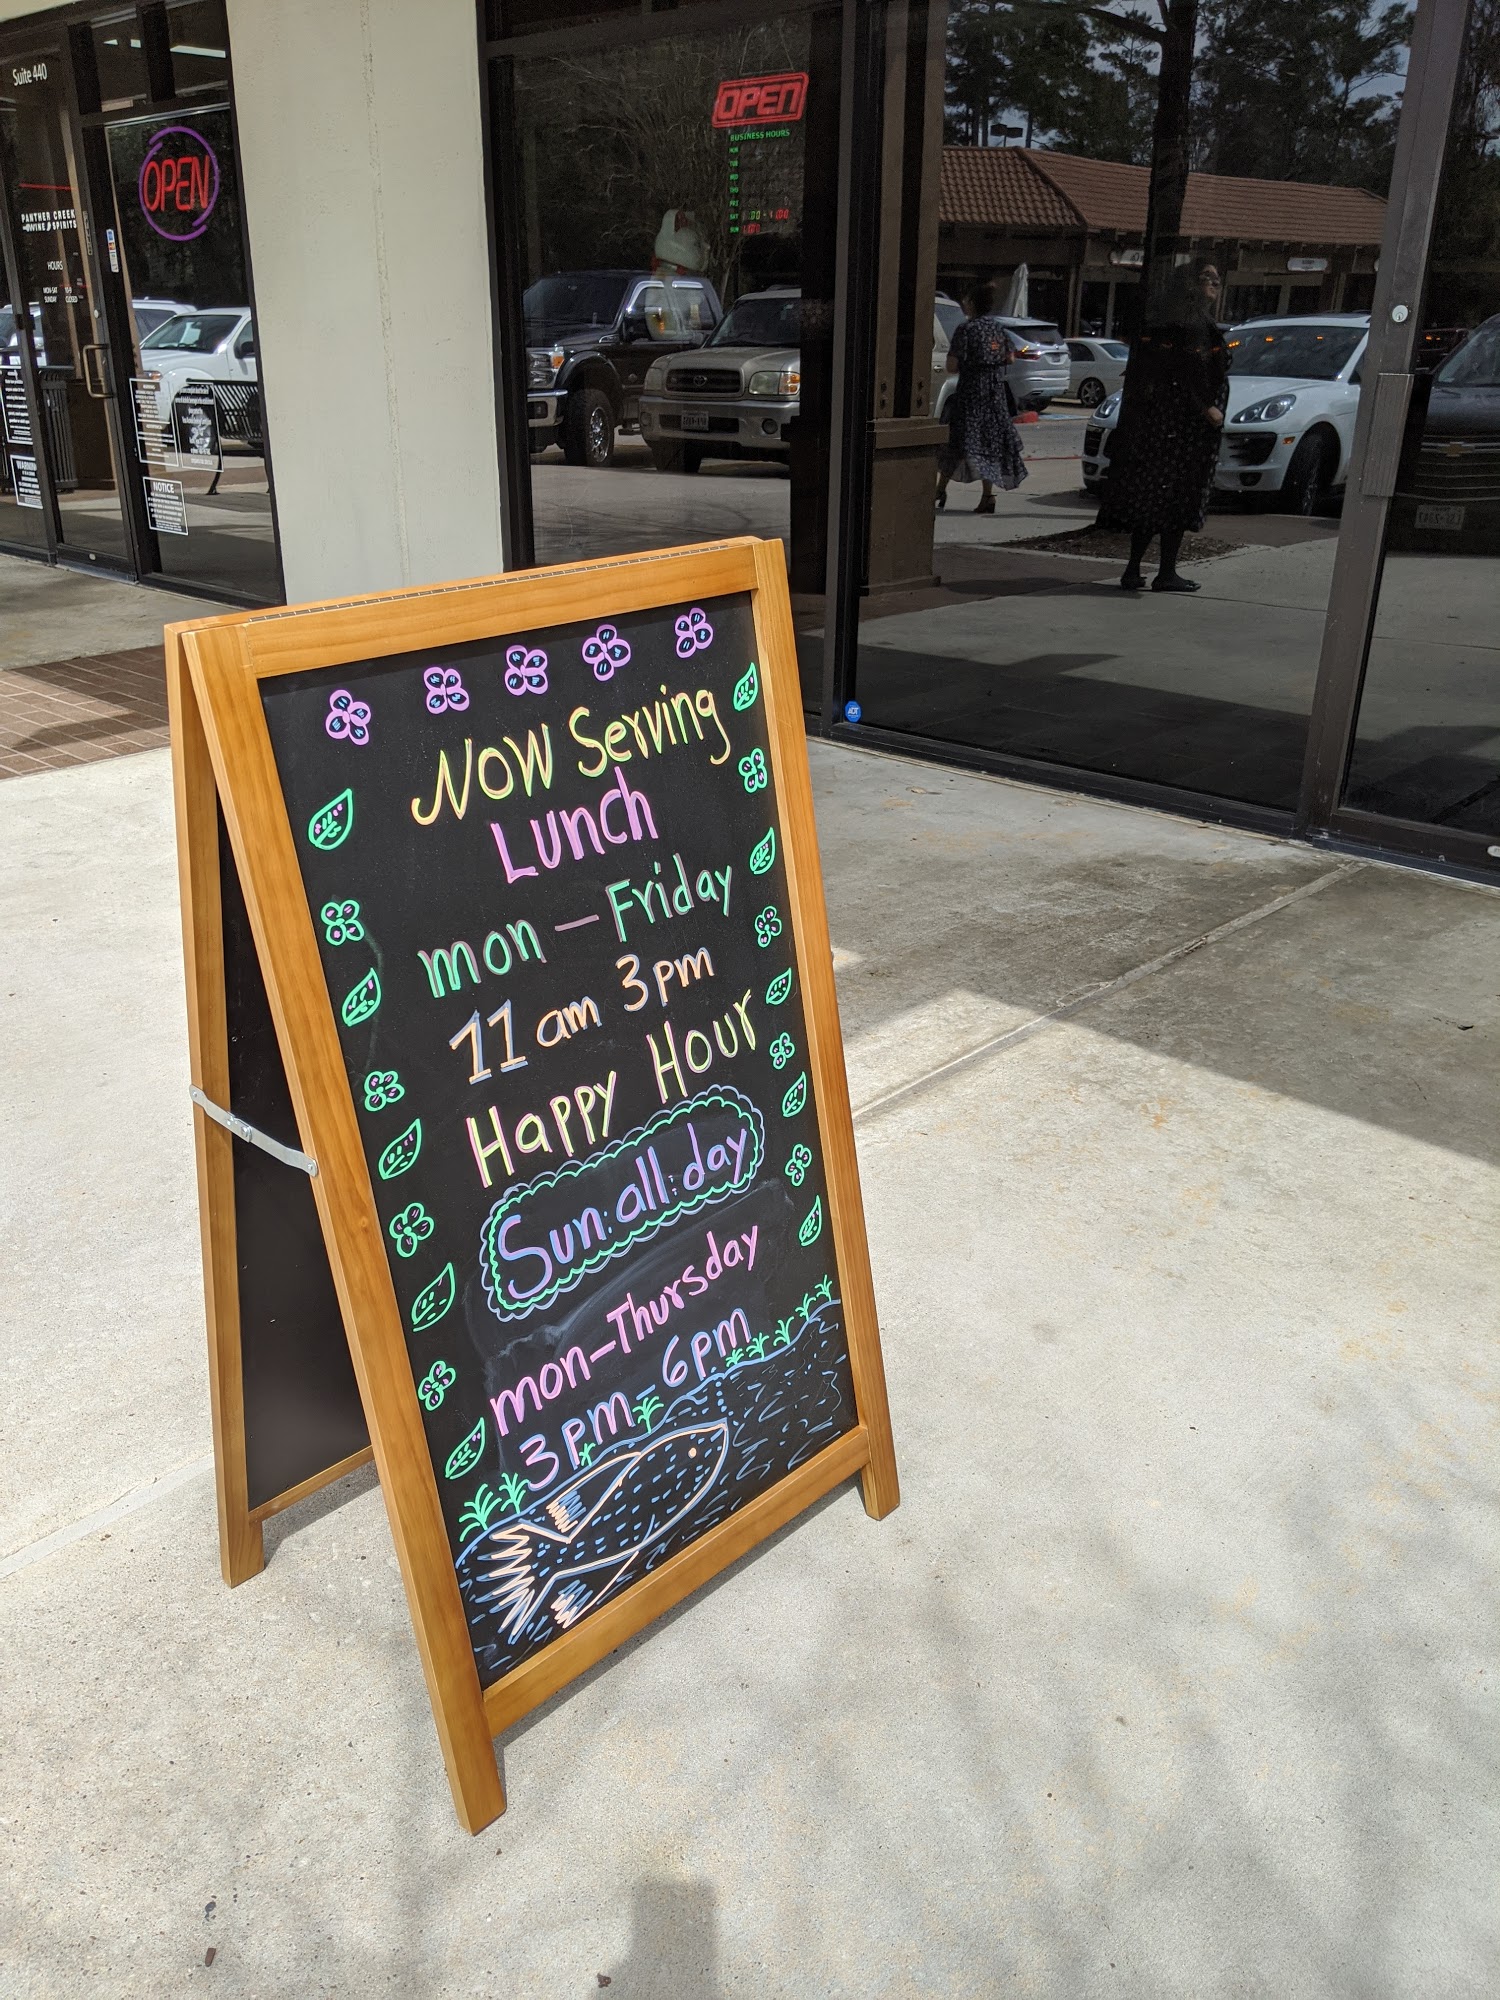 Suite 440
OPEN
PANTHER CREEK
WINE & SPIRITS
HOURS
MON-SAT
SUNDAY CLOSED
NOTICE
OPEN
BUSINESS HOURS
MON
TUE
WED
THU
FRI
SAT
SUN
ADT
NOW Serving
Lunch
mon - Friday
11am 3pm
Happy Hour
Sun: all: day
mon-Thursday
3pm-6pm